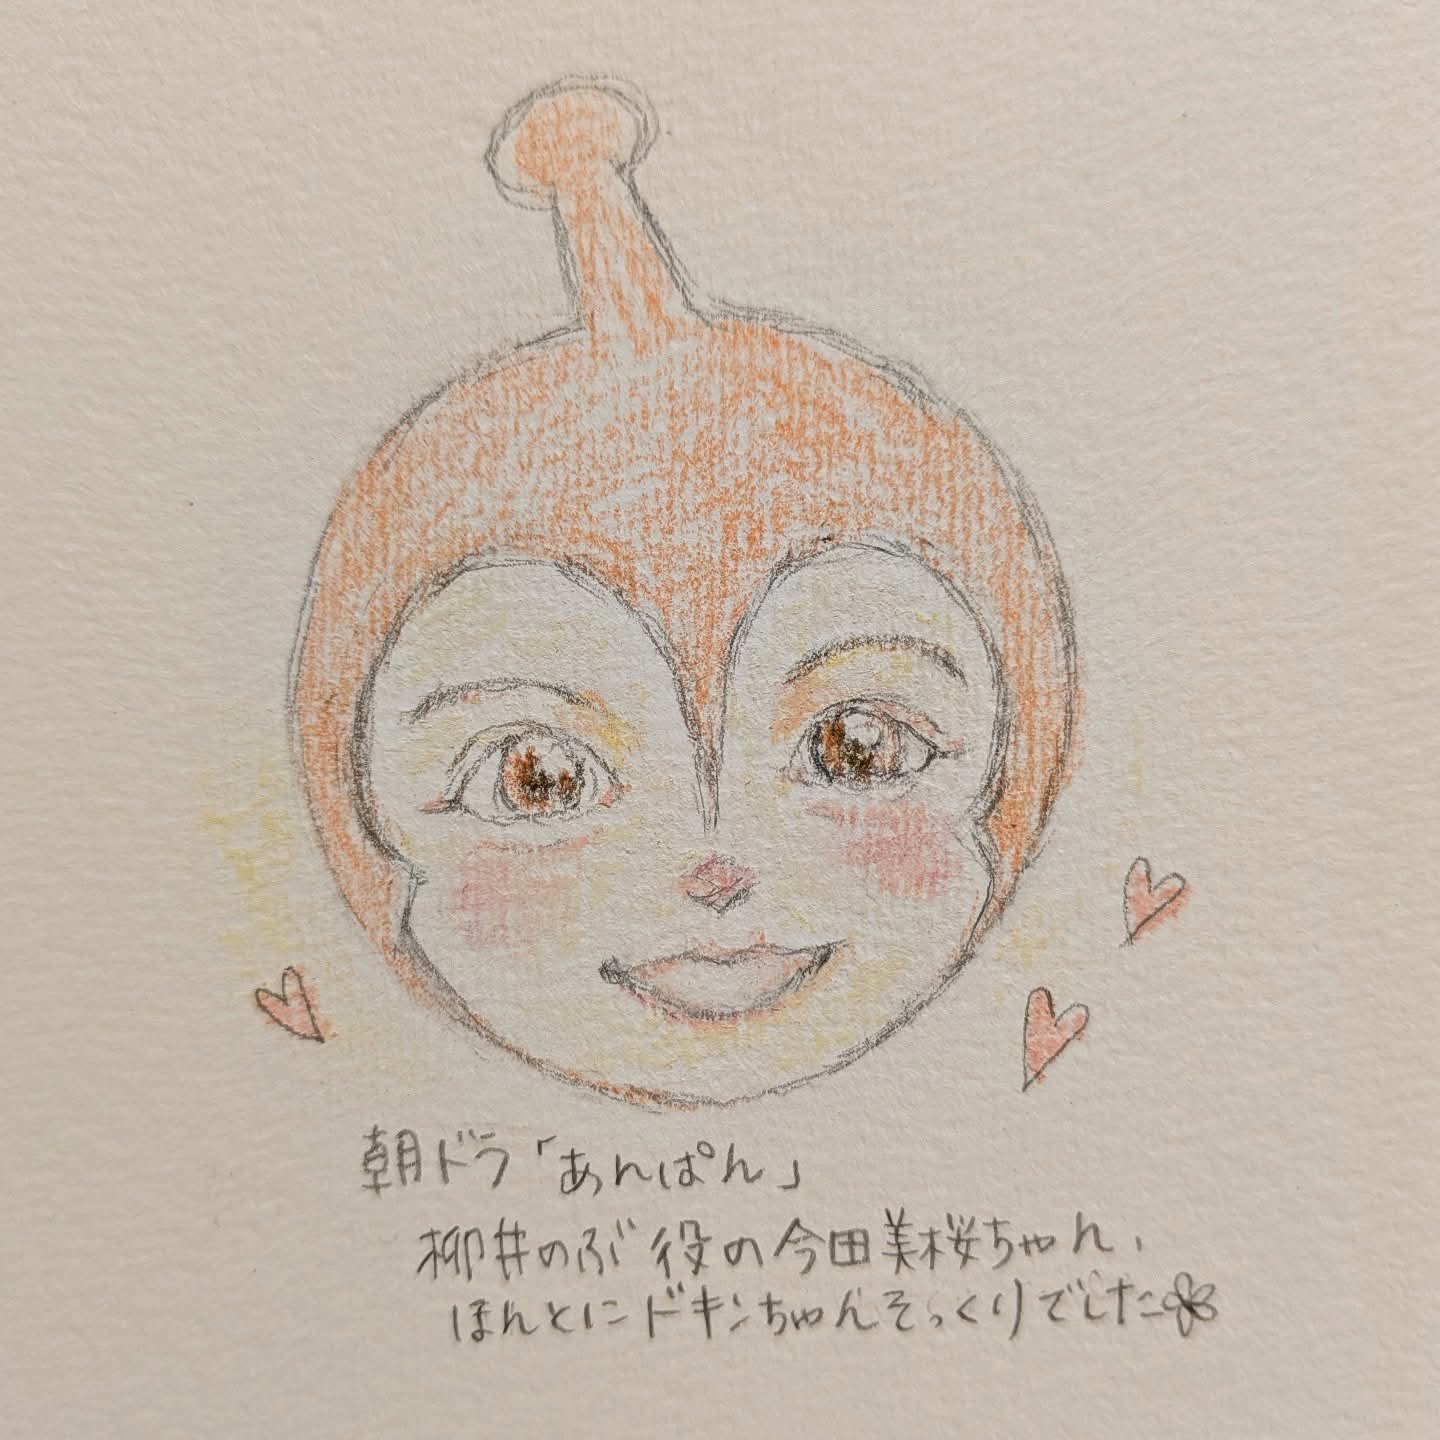 朝ドラ「あんぱん」
柳井のぶ役の今田美桜ちゃん、
ほんとにドキンちゃんそっくりでした